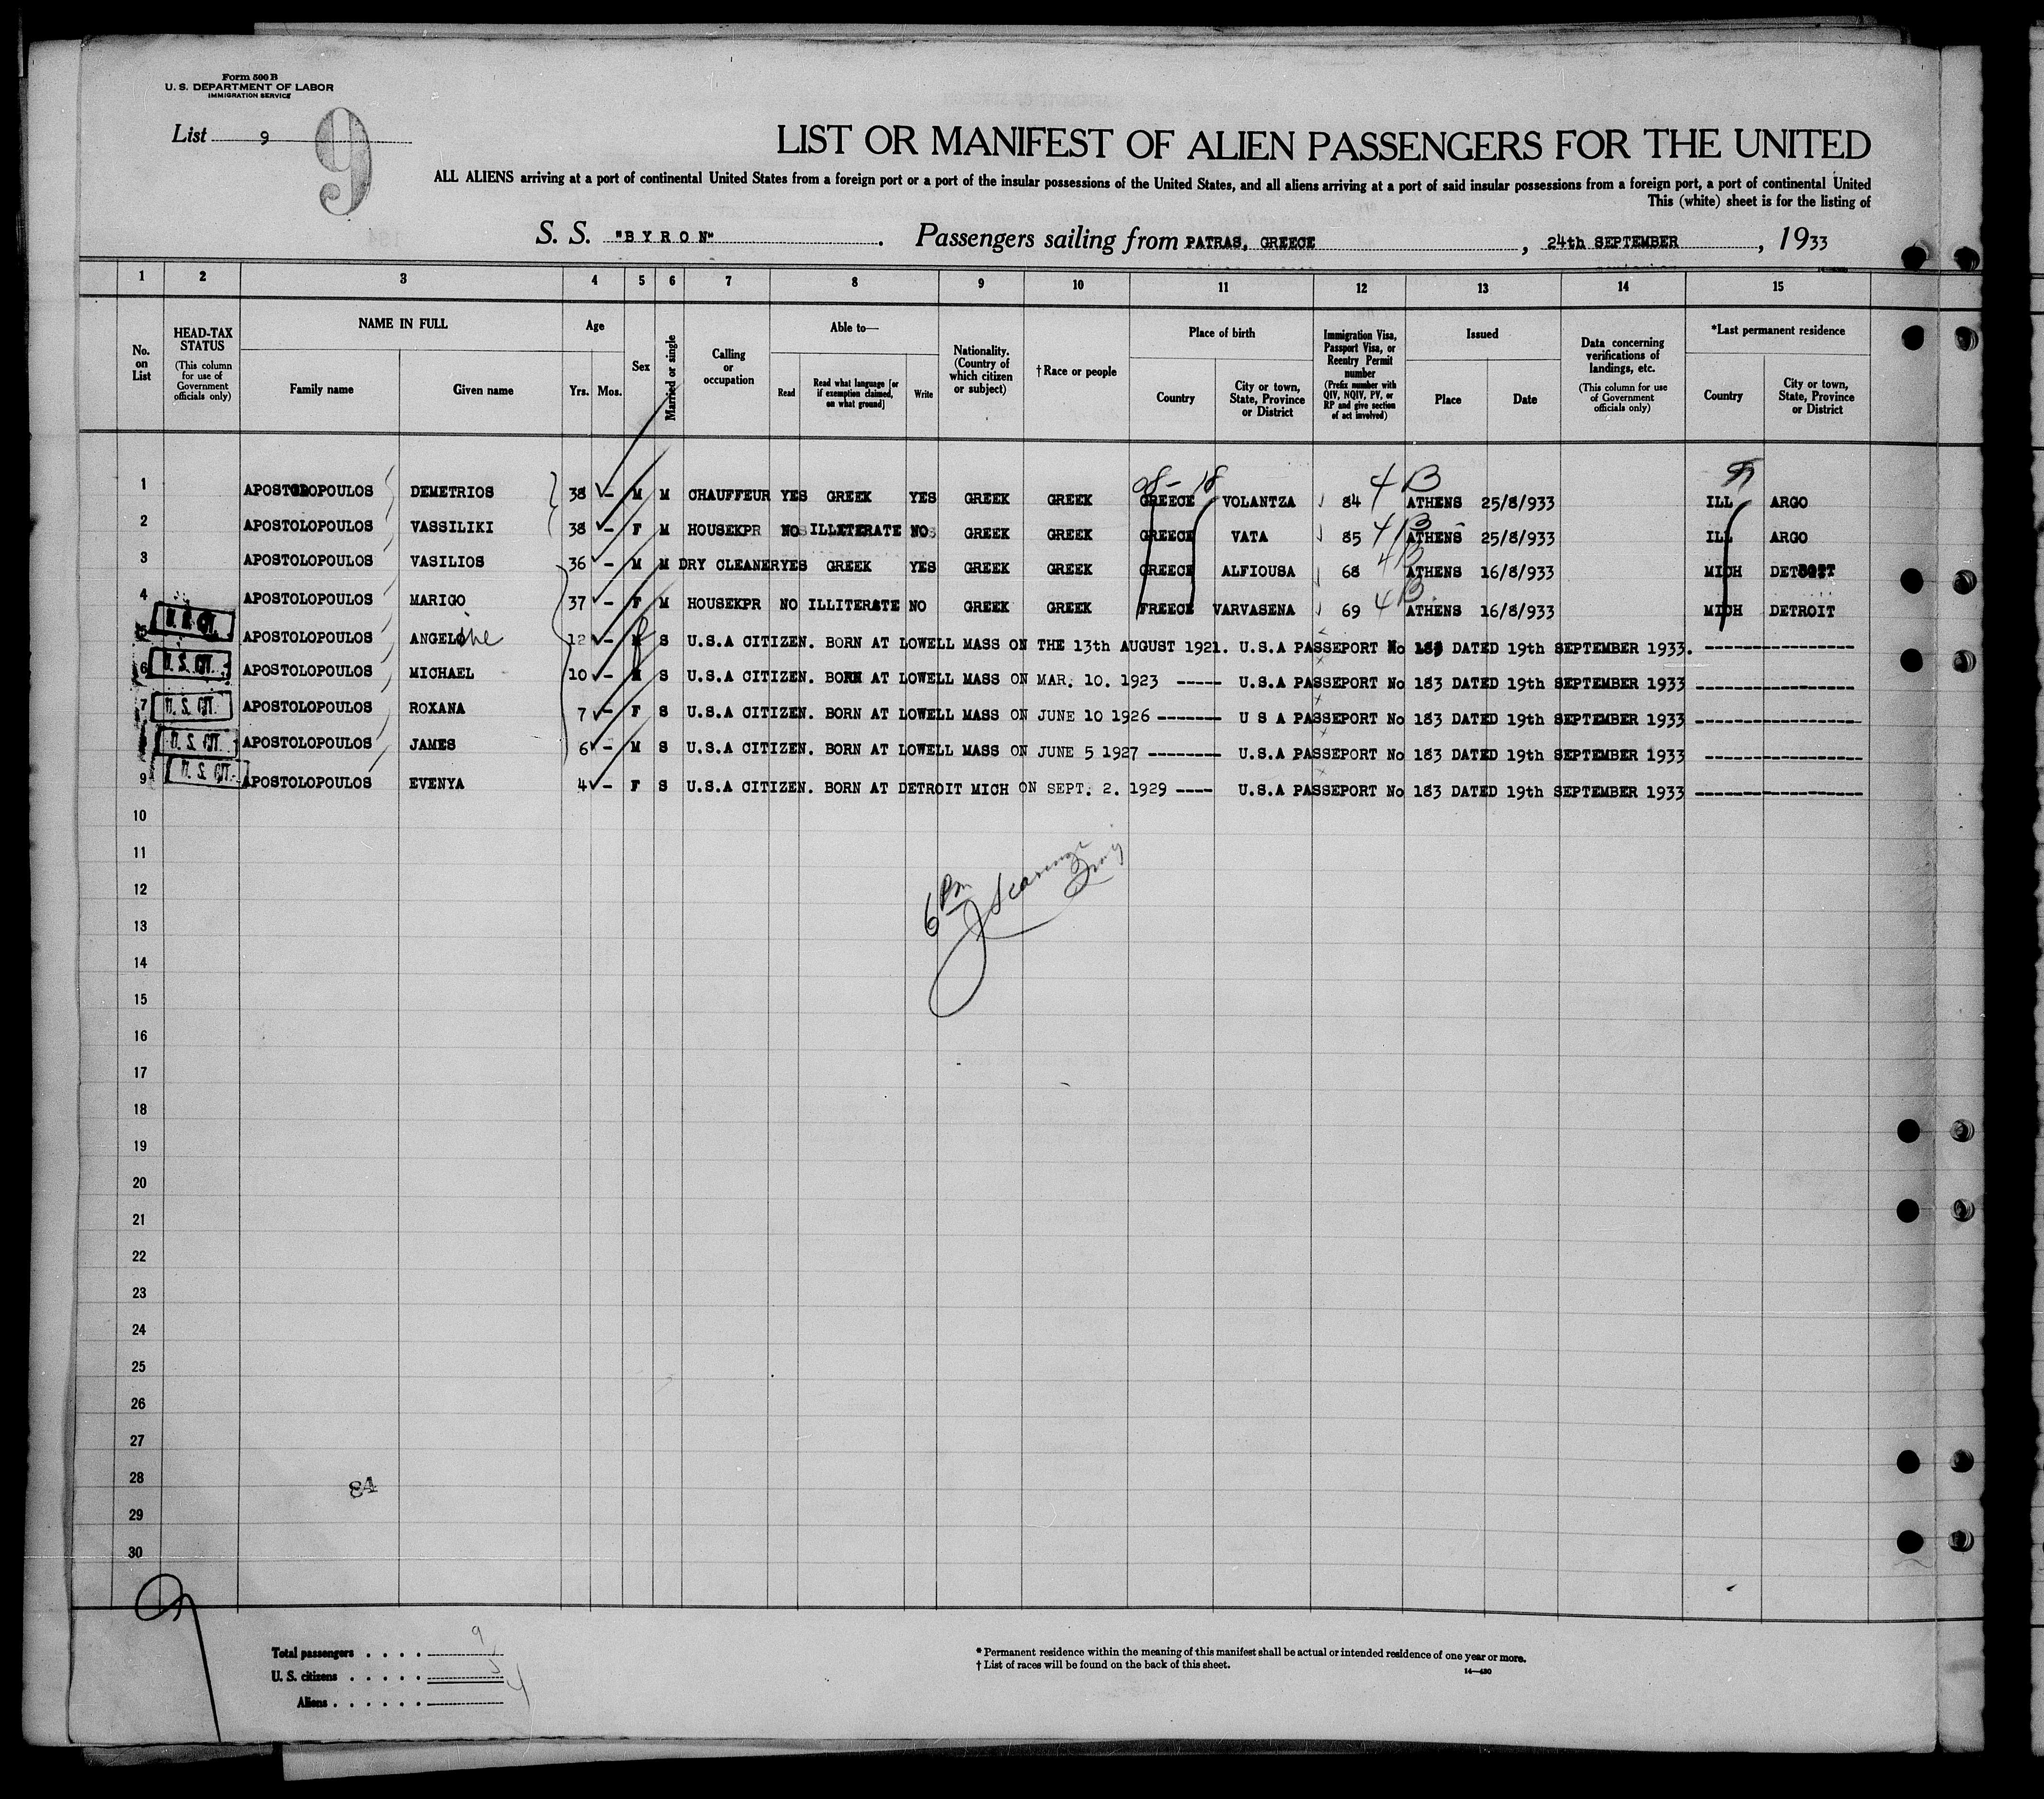 Form 500 B
U. S. DEPARTMENT OF LABOR
IMMIGRATION SERVICE
List 9 9
LIST OR MANIFEST OF ALIEN PASSENGERS FOR THE UNITED
ALL ALIENS arriving at a port of continental United States from a foreign port or a port of the insular possessions of the United States, and all aliens arriving at a port of said insular possessions from a foreign port, a port of continental United
This (white) sheet is for the listing of
S. S. "BYRON". Passengers sailing from PATRAS, GREECE, 24th SEPTEMBER, 1933
1 2 3 4 5 6 7 8 9 10 11 12 13 14 15
No. on List
HEAD-TAX STATUS (This column for use of Government officials only)
NAME IN FULL Family name Given name
Age Yrs. Mos.
Sex
Married or single
Calling or occupation
Able to— Read Read what language [or if exemption claimed, on what ground] Write
Nationality. (Country of which citizen or subject)
† Race or people
Place of birth Country City or town, State, Province or District
Immigration Visa, Passport Visa, or Reentry Permit number (Prefix number with QIV, NQIV, PV, or RP and give section of act involved)
Issued Place Date
Data concerning verifications of landings, etc. (This column for use of Government officials only)
*Last permanent residence Country City or town, State, Province or District
08- 18 4 B
1 APOSTOLOPOULOS DEMETRIOS 38 - M M CHAUFFEUR YES GREEK YES GREEK GREEK GREECE VOLANTZA 84 ATHENS 25/8/933 ILL ARGO
2 APOSTOLOPOULOS VASSILIKI 38 - F M HOUSEKPR NO ILLITERATE NO GREEK GREEK GREECE VATA 85 4B ATHENS 25/8/933 ILL ARGO
3 APOSTOLOPOULOS VASILIOS 36 - M M DRY CLEANER YES GREEK YES GREEK GREEK GREECE ALFIOUSA 68 4B ATHENS 16/8/933 MICH DETROIT
4 APOSTOLOPOULOS MARIGO 37 - F M HOUSEKPR NO ILLITERATE NO GREEK GREEK FREECE VARVASENA 69 4B ATHENS 16/8/933 MICH DETROIT
5 U. S. CIT. APOSTOLOPOULOS ANGELine 12 - F S U.S.A CITIZEN. BORN AT LOWELL MASS ON THE 13th AUGUST 1921. U.S.A PASSEPORT No 183 DATED 19th SEPTEMBER 1933. ----------------
6 U. S. CIT. APOSTOLOPOULOS MICHAEL 10 - M S U.S.A CITIZEN. BORN AT LOWELL MASS ON MAR. 10. 1923 ----- U.S.A PASSEPORT No 183 DATED 19th SEPTEMBER 1933 -----------------
7 U. S. CIT. APOSTOLOPOULOS ROXANA 7 - F S U.S.A CITIZEN. BORN AT LOWELL MASS ON JUNE 10 1926 ------- U S A PASSEPORT No 183 DATED 19th SEPTEMBER 1933 -----------------
U. S. CIT. APOSTOLOPOULOS JAMES 6 - M S U.S.A CITIZEN. BORN AT LOWELL MASS ON JUNE 5 1927 -------- U.S.A PASSEPORT No 183 DATED 19th SEPTEMBER 1933 ----------------
9 U. S. CIT. APOSTOLOPOULOS EVENYA 4 - F S U.S.A CITIZEN. BORN AT DETROIT MICH ON SEPT. 2. 1929 ---- U.S.A PASSEPORT No 183 DATED 19th SEPTEMBER 1933 -----------------
10
11
12
6 Pm
13
14
15
16
17
18
19
20
21
22
23
24
25
26
27
28
84
29
30
Total passengers . . . . 9
U. S. citizens . . . . . 5
Aliens . . . . . . 4
* Permanent residence within the meaning of this manifest shall be actual or intended residence of one year or more.
† List of races will be found on the back of this sheet. 14—430